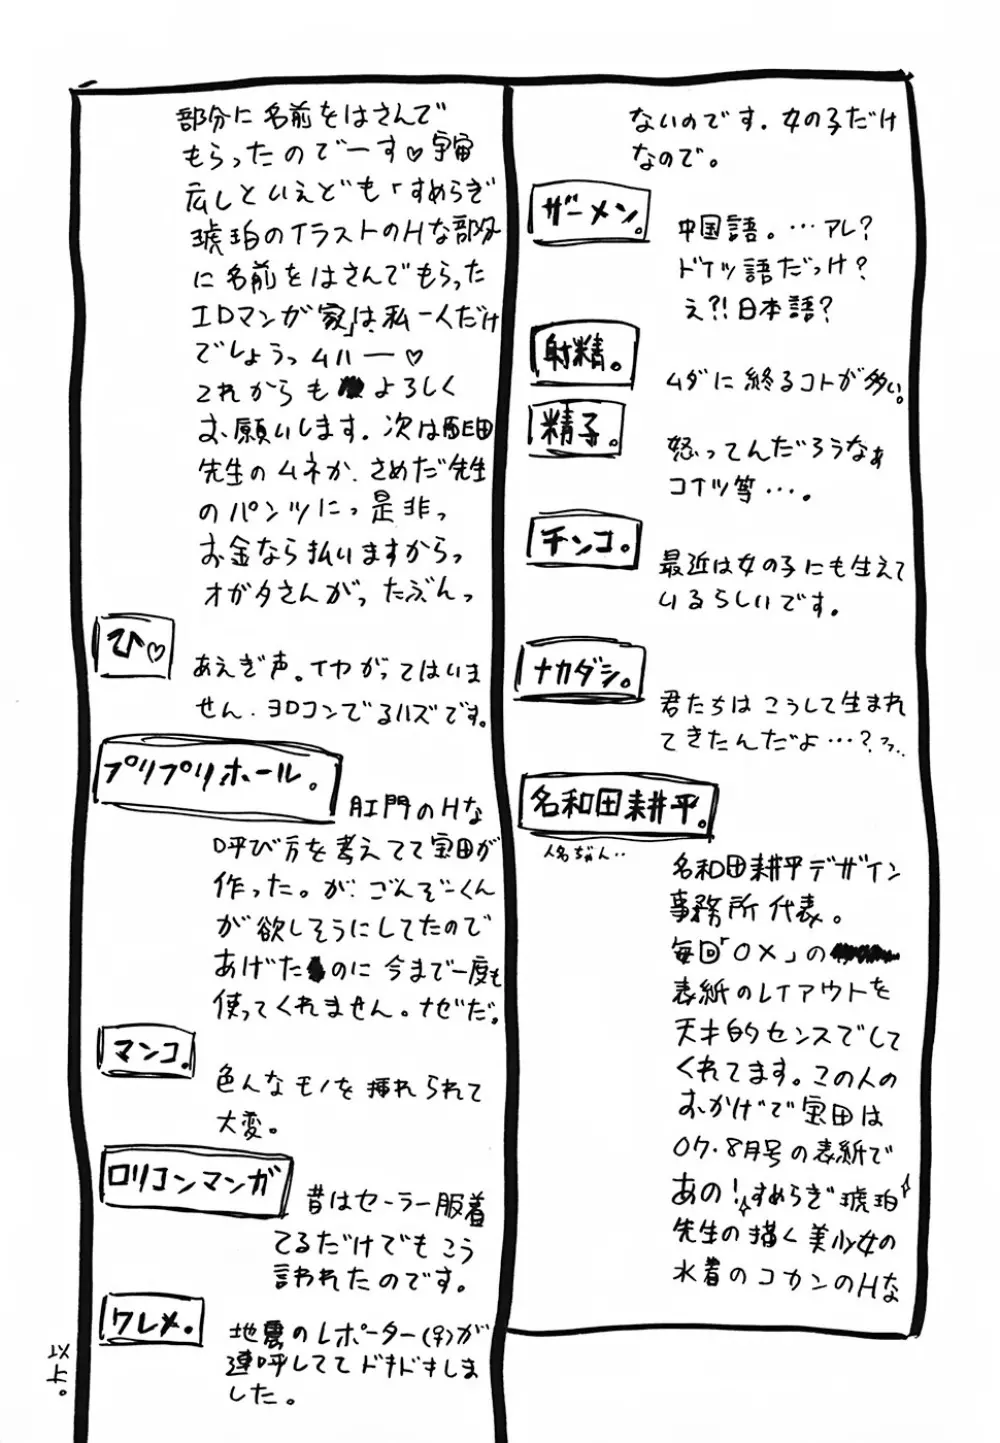 ないのです。女の子だけ
なので。
ザーメン。
中国語。…アレ?
ドイツ語だっけ?
え?!日本語?
射精。
ムダに終るコトが多い。
精子。
怒ってんだろうなぁ
コイツ等…。
チンコ。
最近は女の子にも生えて
いるらしいです。
ナカダシ。
君たちはこうして生まれ
てきたんだよ…?フフ..
名和田耕平。
人名ぢゃん‥
名和田耕平デザイン
事務所代表。
毎回「OX」の
表紙のレイアウトを
天才的センスでして
くれてます。この人の
おかげで宝田は
07.8月号の表紙で
あの!すめらぎ琥珀
先生の描く美少女の
水着のコカンのHな
部分に名前をはさんで
もらったのでーす♡宇宙
広しといえども「すめらぎ
琥珀のイラストのHな部分
に名前をはさんでもらった
エロマンガ家」は私一人だけ
でしょうっムハー♡
これからもよろしく
お願いします。次は西E田
先生のムネか、さめだ先生
のパンツにっ是非っ
お金なら払いますからっ
オガタさんがっ たぶんっ
ひ♡
あえぎ声。イヤがってはいま
せん。ヨロコンでるハズです。
プリプリホール。
肛門のHな
呼び方を考えてて宝田が
作った。が、ごんぞーくん
が欲しそうにしてたので
あげたのに今まで一度も
使ってくれません。ナゼだ。
マンコ。
色んなモノを挿れられて
大変。
ロリコンマンガ
昔はセーラー服着
てるだけでもこう
訳われたのです。
ワレメ。
地震のレポーター(♀)が
連呼しててドキドキしま
した。